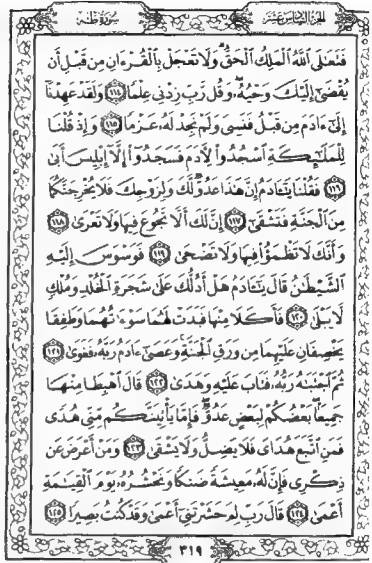 الجزء السادس عشر
سورة طه
فَتَعَٰلَى ٱللَّهُ ٱلْمَلِكُ ٱلْحَقُّ ۗ وَلَا تَعْجَلْ بِٱلْقُرْءَانِ مِن قَبْلِ أَن
يُقْضَىٰٓ إِلَيْكَ وَحْيُهُۥ ۖ وَقُل رَّبِّ زِدْنِى عِلْمًا ﴿١١٤﴾ وَلَقَدْ عَهِدْنَآ
إِلَىٰٓ ءَادَمَ مِن قَبْلُ فَنَسِىَ وَلَمْ نَجِدْ لَهُۥ عَزْمًا ﴿١١٥﴾ وَإِذْ قُلْنَا
لِلْمَلَٰٓئِكَةِ ٱسْجُدُوا۟ لِءَادَمَ فَسَجَدُوٓا۟ إِلَّآ إِبْلِيسَ أَبَىٰ
﴿١١٦﴾ فَقُلْنَا يَٰٓـَٔادَمُ إِنَّ هَٰذَا عَدُوٌّ لَّكَ وَلِزَوْجِكَ فَلَا يُخْرِجَنَّكُمَا
مِنَ ٱلْجَنَّةِ فَتَشْقَىٰٓ ﴿١١٧﴾ إِنَّ لَكَ أَلَّا تَجُوعَ فِيهَا وَلَا تَعْرَىٰ ﴿١١٨﴾
وَأَنَّكَ لَا تَظْمَؤُا۟ فِيهَا وَلَا تَضْحَىٰ ﴿١١٩﴾ فَوَسْوَسَ إِلَيْهِ
ٱلشَّيْطَٰنُ قَالَ يَٰٓـَٔادَمُ هَلْ أَدُلُّكَ عَلَىٰ شَجَرَةِ ٱلْخُلْدِ وَمُلْكٍ
لَّا يَبْلَىٰ ﴿١٢٠﴾ فَأَكَلَا مِنْهَا فَبَدَتْ لَهُمَا سَوْءَٰتُهُمَا وَطَفِقَا
يَخْصِفَانِ عَلَيْهِمَا مِن وَرَقِ ٱلْجَنَّةِ ۚ وَعَصَىٰٓ ءَادَمُ رَبَّهُۥ فَغَوَىٰ ﴿١٢١﴾
ثُمَّ ٱجْتَبَٰهُ رَبُّهُۥ فَتَابَ عَلَيْهِ وَهَدَىٰ ﴿١٢٢﴾ قَالَ ٱهْبِطَا مِنْهَا
جَمِيعًۢا ۖ بَعْضُكُمْ لِبَعْضٍ عَدُوٌّ ۖ فَإِمَّا يَأْتِيَنَّكُم مِّنِّى هُدًى
فَمَنِ ٱتَّبَعَ هُدَاىَ فَلَا يَضِلُّ وَلَا يَشْقَىٰ ﴿١٢٣﴾ وَمَنْ أَعْرَضَ عَن
ذِكْرِى فَإِنَّ لَهُۥ مَعِيشَةً ضَنكًا وَنَحْشُرُهُۥ يَوْمَ ٱلْقِيَٰمَةِ
أَعْمَىٰ ﴿١٢٤﴾ قَالَ رَبِّ لِمَ حَشَرْتَنِىٓ أَعْمَىٰ وَقَدْ كُنتُ بَصِيرًا ﴿١٢٥﴾
٣١٩